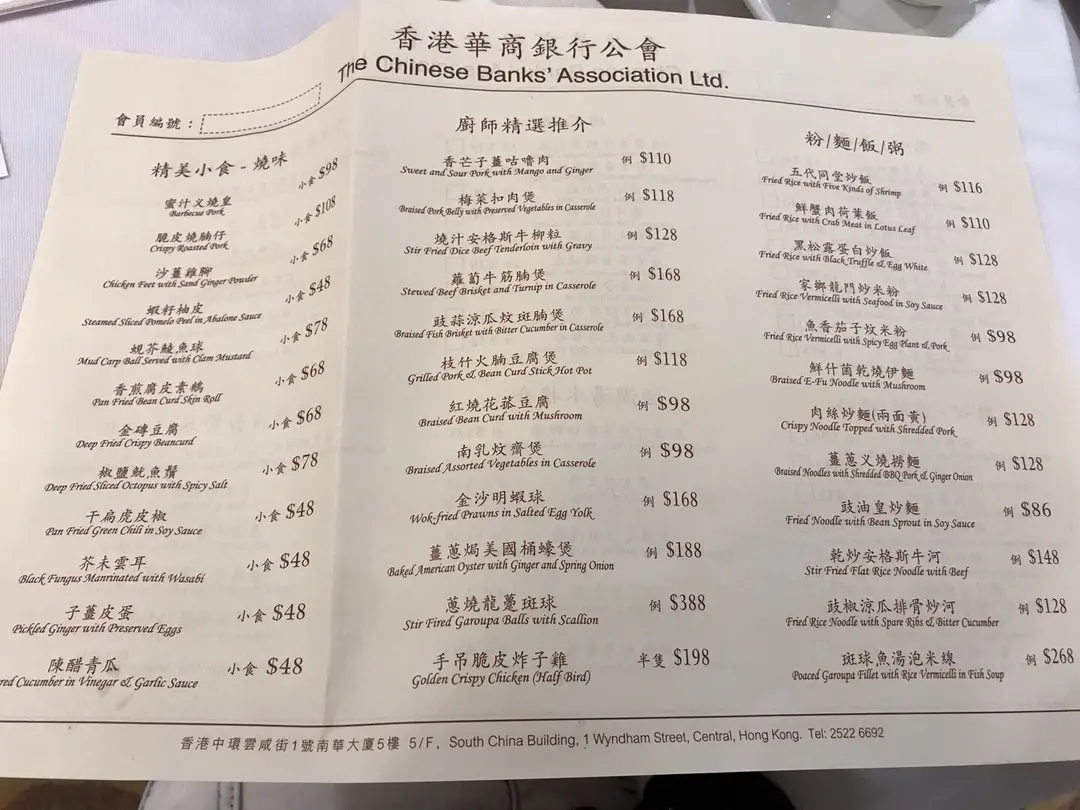 香港華商銀行公會
The Chinese Banks' Association Ltd.
會員編號：
精美小食 - 燒味
蜜汁叉燒皇 小食 $98
Barbecue Pork
脆皮燒腩仔 小食 $108
Crispy Roasted Pork
沙薑雞腳 小食 $68
Chicken Feet with Sand Ginger Powder
蝦籽柚皮 小食 $48
Steamed Sliced Pomelo Peel in Abalone Sauce
蜆芥鯪魚球 小食 $78
Mud Carp Ball Served with Clam Mustard
香煎腐皮素鵝 小食 $68
Pan Fried Bean Curd Skin Roll
金磚豆腐 小食 $68
Deep Fried Crispy Beancurd
椒鹽魷魚鬚 小食 $78
Deep Fried Sliced Octopus with Spicy Salt
干扁虎皮椒 小食 $48
Pan Fried Green Chili in Soy Sauce
芥末雲耳 小食 $48
Black Fungus Manrinated with Wasabi
子薑皮蛋 小食 $48
Pickled Ginger with Preserved Eggs
陳醋青瓜 小食 $48
Cucumber in Vinegar & Garlic Sauce
廚師精選推介
香芒子薑咕嚕肉 例 $110
Sweet and Sour Pork with Mango and Ginger
梅菜扣肉煲 例 $118
Braised Pork Belly with Preserved Vegetables in Casserole
燒汁安格斯牛柳粒 例 $128
Stir Fried Dice Beef Tenderloin with Gravy
蘿蔔牛筋腩煲 例 $168
Stewed Beef Brisket and Turnip in Casserole
豉蒜涼瓜炆斑腩煲 例 $168
Braised Fish Brisket with Bitter Cucumber in Casserole
枝竹火腩豆腐煲 例 $118
Grilled Pork & Bean Curd Stick Hot Pot
紅燒花菇豆腐 例 $98
Braised Bean Curd with Mushroom
南乳炆齋煲 例 $98
Braised Assorted Vegetables in Casserole
金沙明蝦球 例 $168
Wok-fried Prawns in Salted Egg Yolk
薑蔥焗美國桶蠔煲 例 $188
Baked American Oyster with Ginger and Spring Onion
蔥燒龍躉斑球 例 $388
Stir Fired Garoupa Balls with Scallion
手吊脆皮炸子雞 半隻 $198
Golden Crispy Chicken (Half Bird)
粉/麵/飯/粥
五代同堂炒飯 例 $116
Fried Rice with Five Kinds of Shrimp
鮮蟹肉荷葉飯 例 $110
Fried Rice with Crab Meat in Lotus Leaf
黑松露蛋白炒飯 例 $128
Fried Rice with Black Truffle & Egg White
家鄉龍門炒米粉 例 $128
Fried Rice Vermicelli with Seafood in Soy Sauce
魚香茄子炆米粉 例 $98
Fried Rice Vermicelli with Spicy Egg Plant & Pork
鮮什菌乾燒伊麵 例 $98
Braised E-Fu Noodle with Mushroom
肉絲炒麵(兩面黃) 例 $128
Crispy Noodle Topped with Shredded Pork
薑蔥叉燒撈麵 例 $128
Braised Noodles with Shredded BBQ Pork & Ginger Onion
豉油皇炒麵 例 $86
Fried Noodle with Bean Sprout in Soy Sauce
乾炒安格斯牛河 例 $148
Stir Fried Flat Rice Noodle with Beef
豉椒涼瓜排骨炒河 例 $128
Fried Rice Noodle with Spare Ribs & Bitter Cucumber
斑球魚湯泡米線 例 $268
Poaced Garoupa Fillet with Rice Vermicelli in Fish Soup
香港中環雲咸街1號南華大廈5樓 5/F, South China Building, 1 Wyndham Street, Central, Hong Kong. Tel: 2522 6692